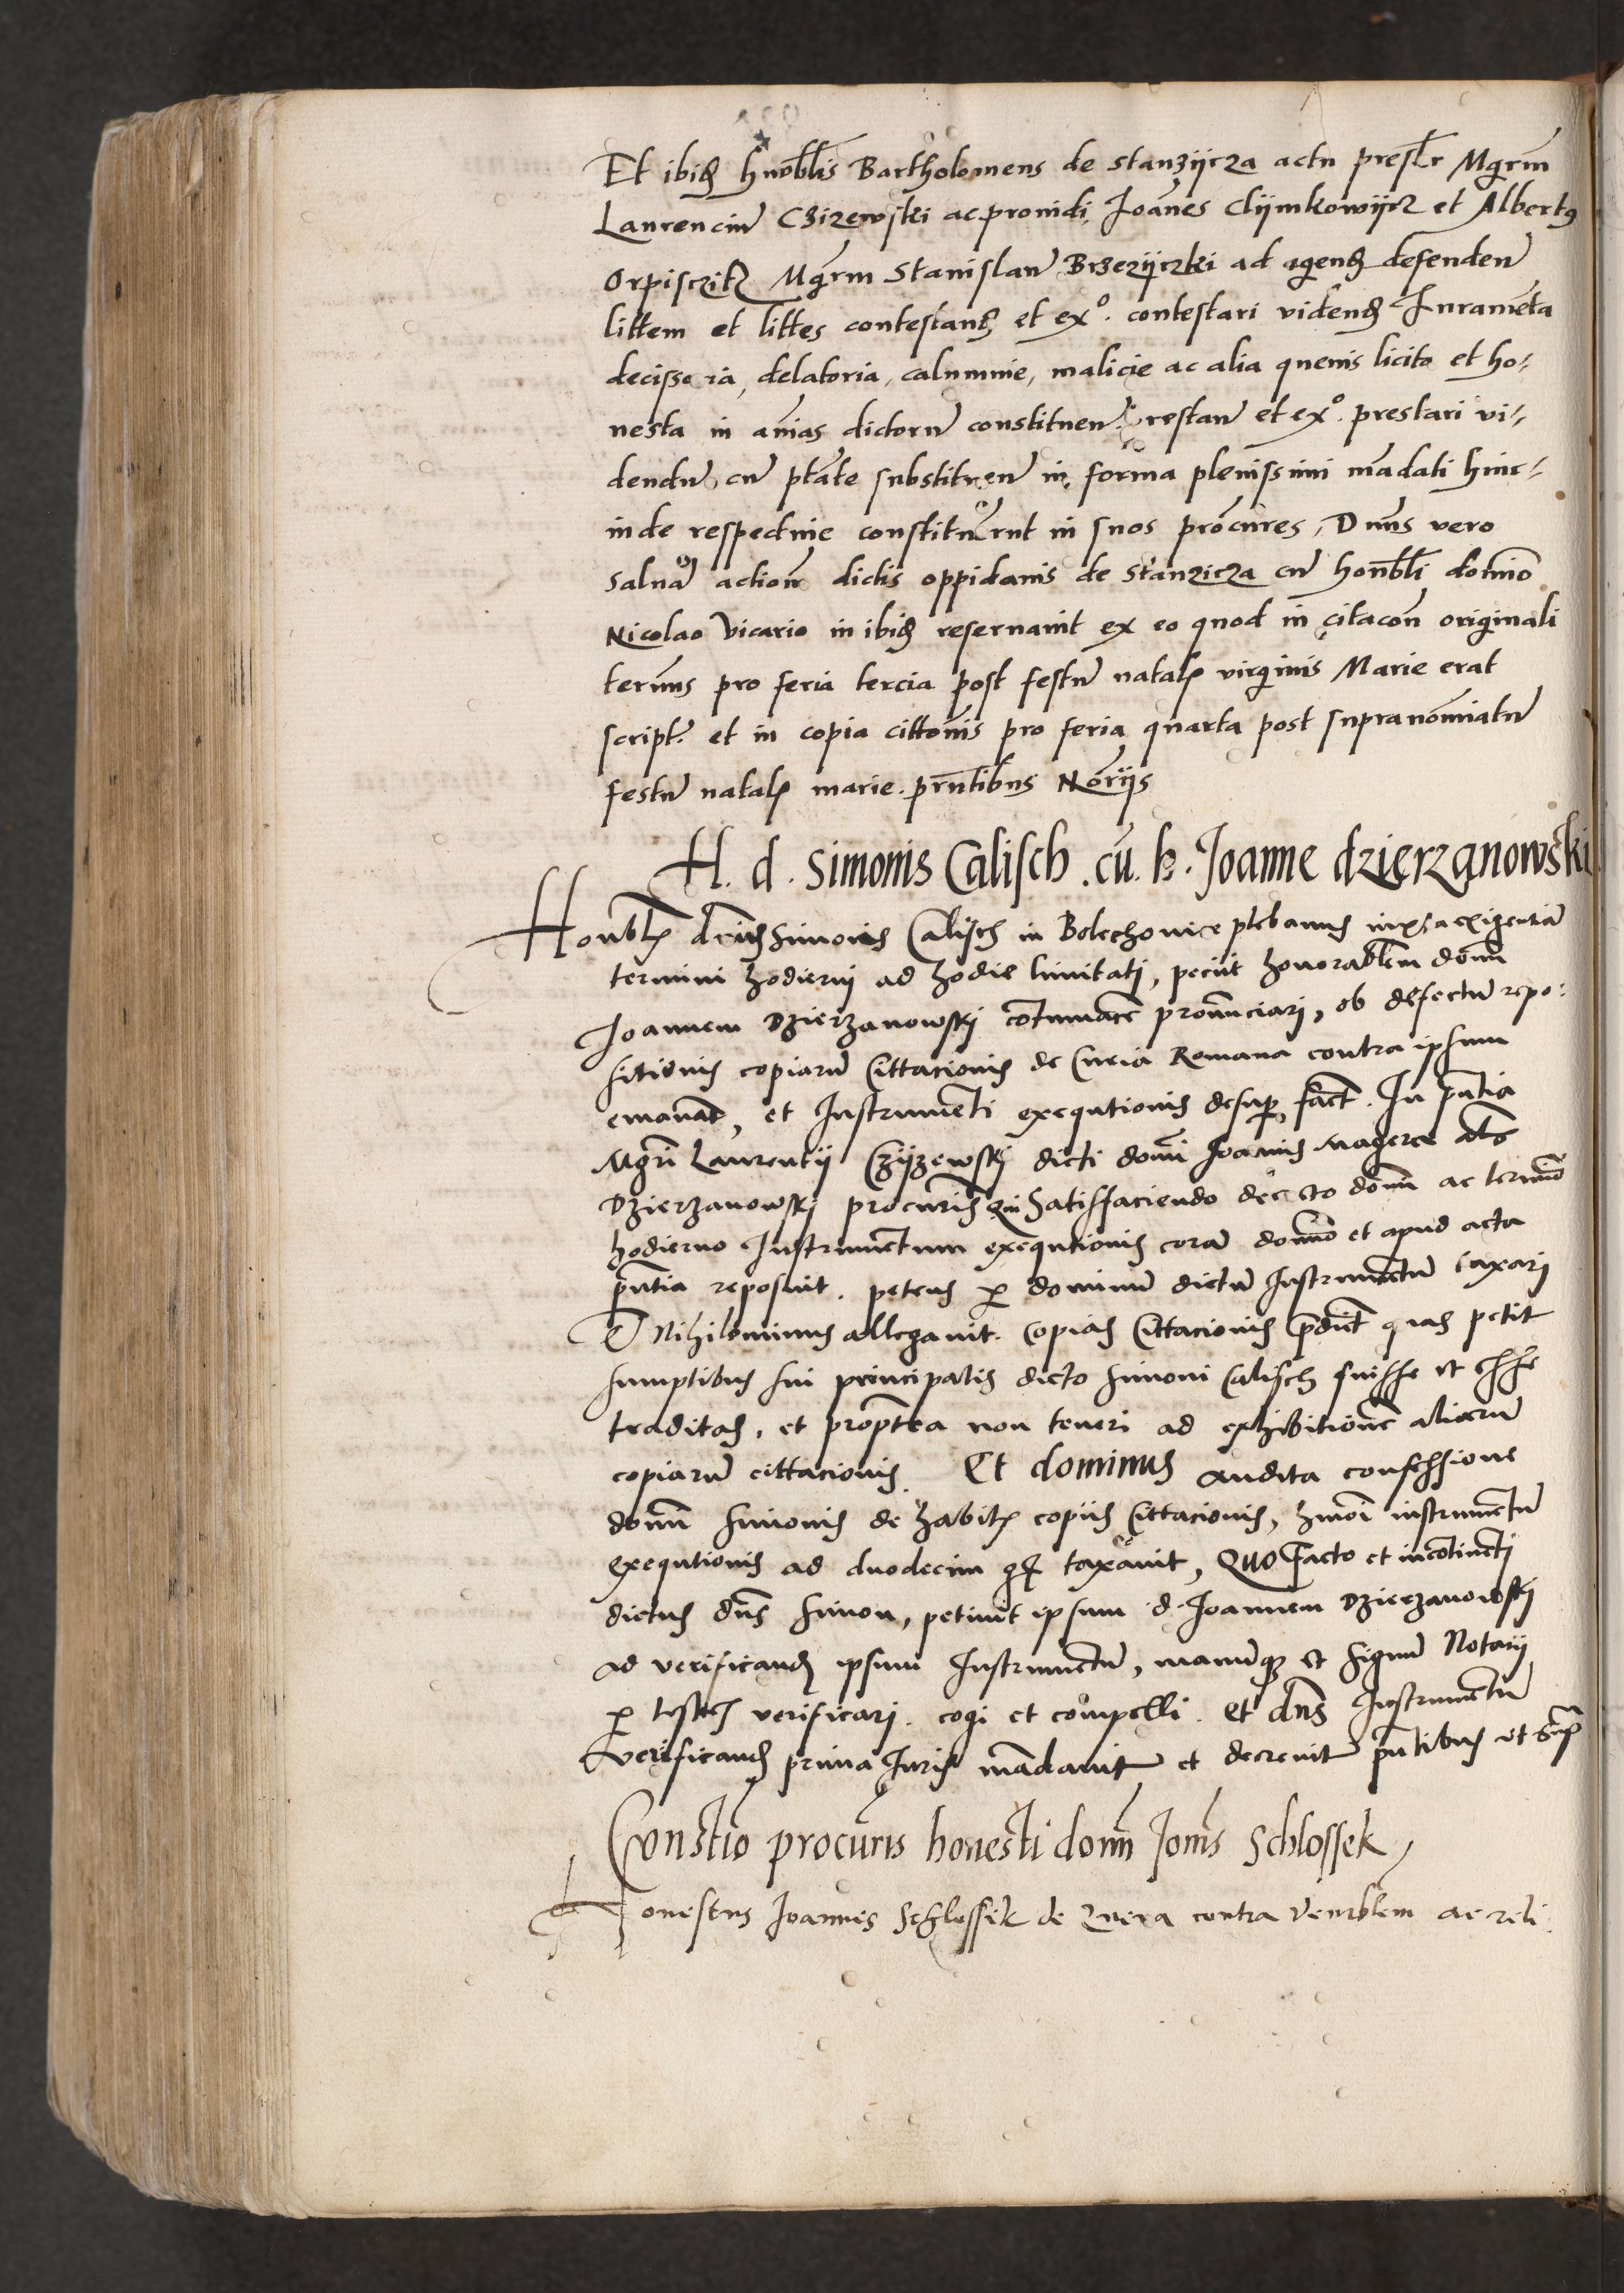 Et ibid honobilis Bartholomeus de Stanzijcza actu presbr Mgrm
Laurenciu Czizewski ac providi Joannes Clijmkowijcz et Albertus
Mgrm Stanislau Brzezijczki ad agend defendeu
littem et littes contestand et exo. contestari videnđ Jurameta
decissoria, delatoria, calumnie, malicie ac alia quevis licita et ho-
nesta in aias dictoru constitueu prestan et exo. prestari vi-
dendu cu ptate substituen in forma plenissimi madati hinc-
inde respective constituerut in suos procures, Dnus vero
salua action dictis oppidanis de Stanzicza cu honobli domino
Nicolao Vicario in ibid reservauit ex eo quod in citacon originali
termus pro feria tercia post festu natal virginis Marie erat
script. et in copia cittonis pro feria quarta post supranominatu
festu natal marie. prntibus Noriis
H. d. Simonis Calisch. cu. h. Joanne dzierzanowski
Honobl dnus Simonis Calisch in Bolechovice plebanus iuxta exigentia
termini hodierni ad hodie limitati, peciit honorablem domn
Joannem Dzierzanowskj cotumace pronunciari, ob defectu repo-
sitionis copiaru Cittacionis de Curia Romana contra ipsum
emanat, et Instrumeti exequtionis desup fact. In pntia
Mgri Laurentij Czijzewskj dicti domi Joannis als
Dzierzanowskj procuris Qui Satisfaciendo decreto domn ac termino
hodierno Instrumentum exequtionis cora domino et apud acta
pntia reposuit. petens p dominu dictu Instrumentu taxari
Et Nihilominus allegavit. Copias Cittacionis predict quas petit
sumptibus sui principalis dicto simoni Calisch fuisse et esse
traditas, et proptea non teneri ad exhibitione aliaru
copiaru cittacionis. Et dominus audita confessione
domi Simonis de habit copiis Cittacionis, hmoi instrumentu
exequtionis ad duodecim gr taxavit, Quo facto et incotineti
dictus dns Simon, petiuit ipsum d. Joannem Dzierzanowskj
ad verificand ipsum Instrumentu, manuq et signu Notarij
p testes verificari. cogi et compelli. et dns Instrumentu
verificand prima Juris madavit et decrevit pntibus ut sup
Constio procuris honesti domi Jonis Schlossek
Honestus Joannes Schlossek de contra Venrblem ac reli-